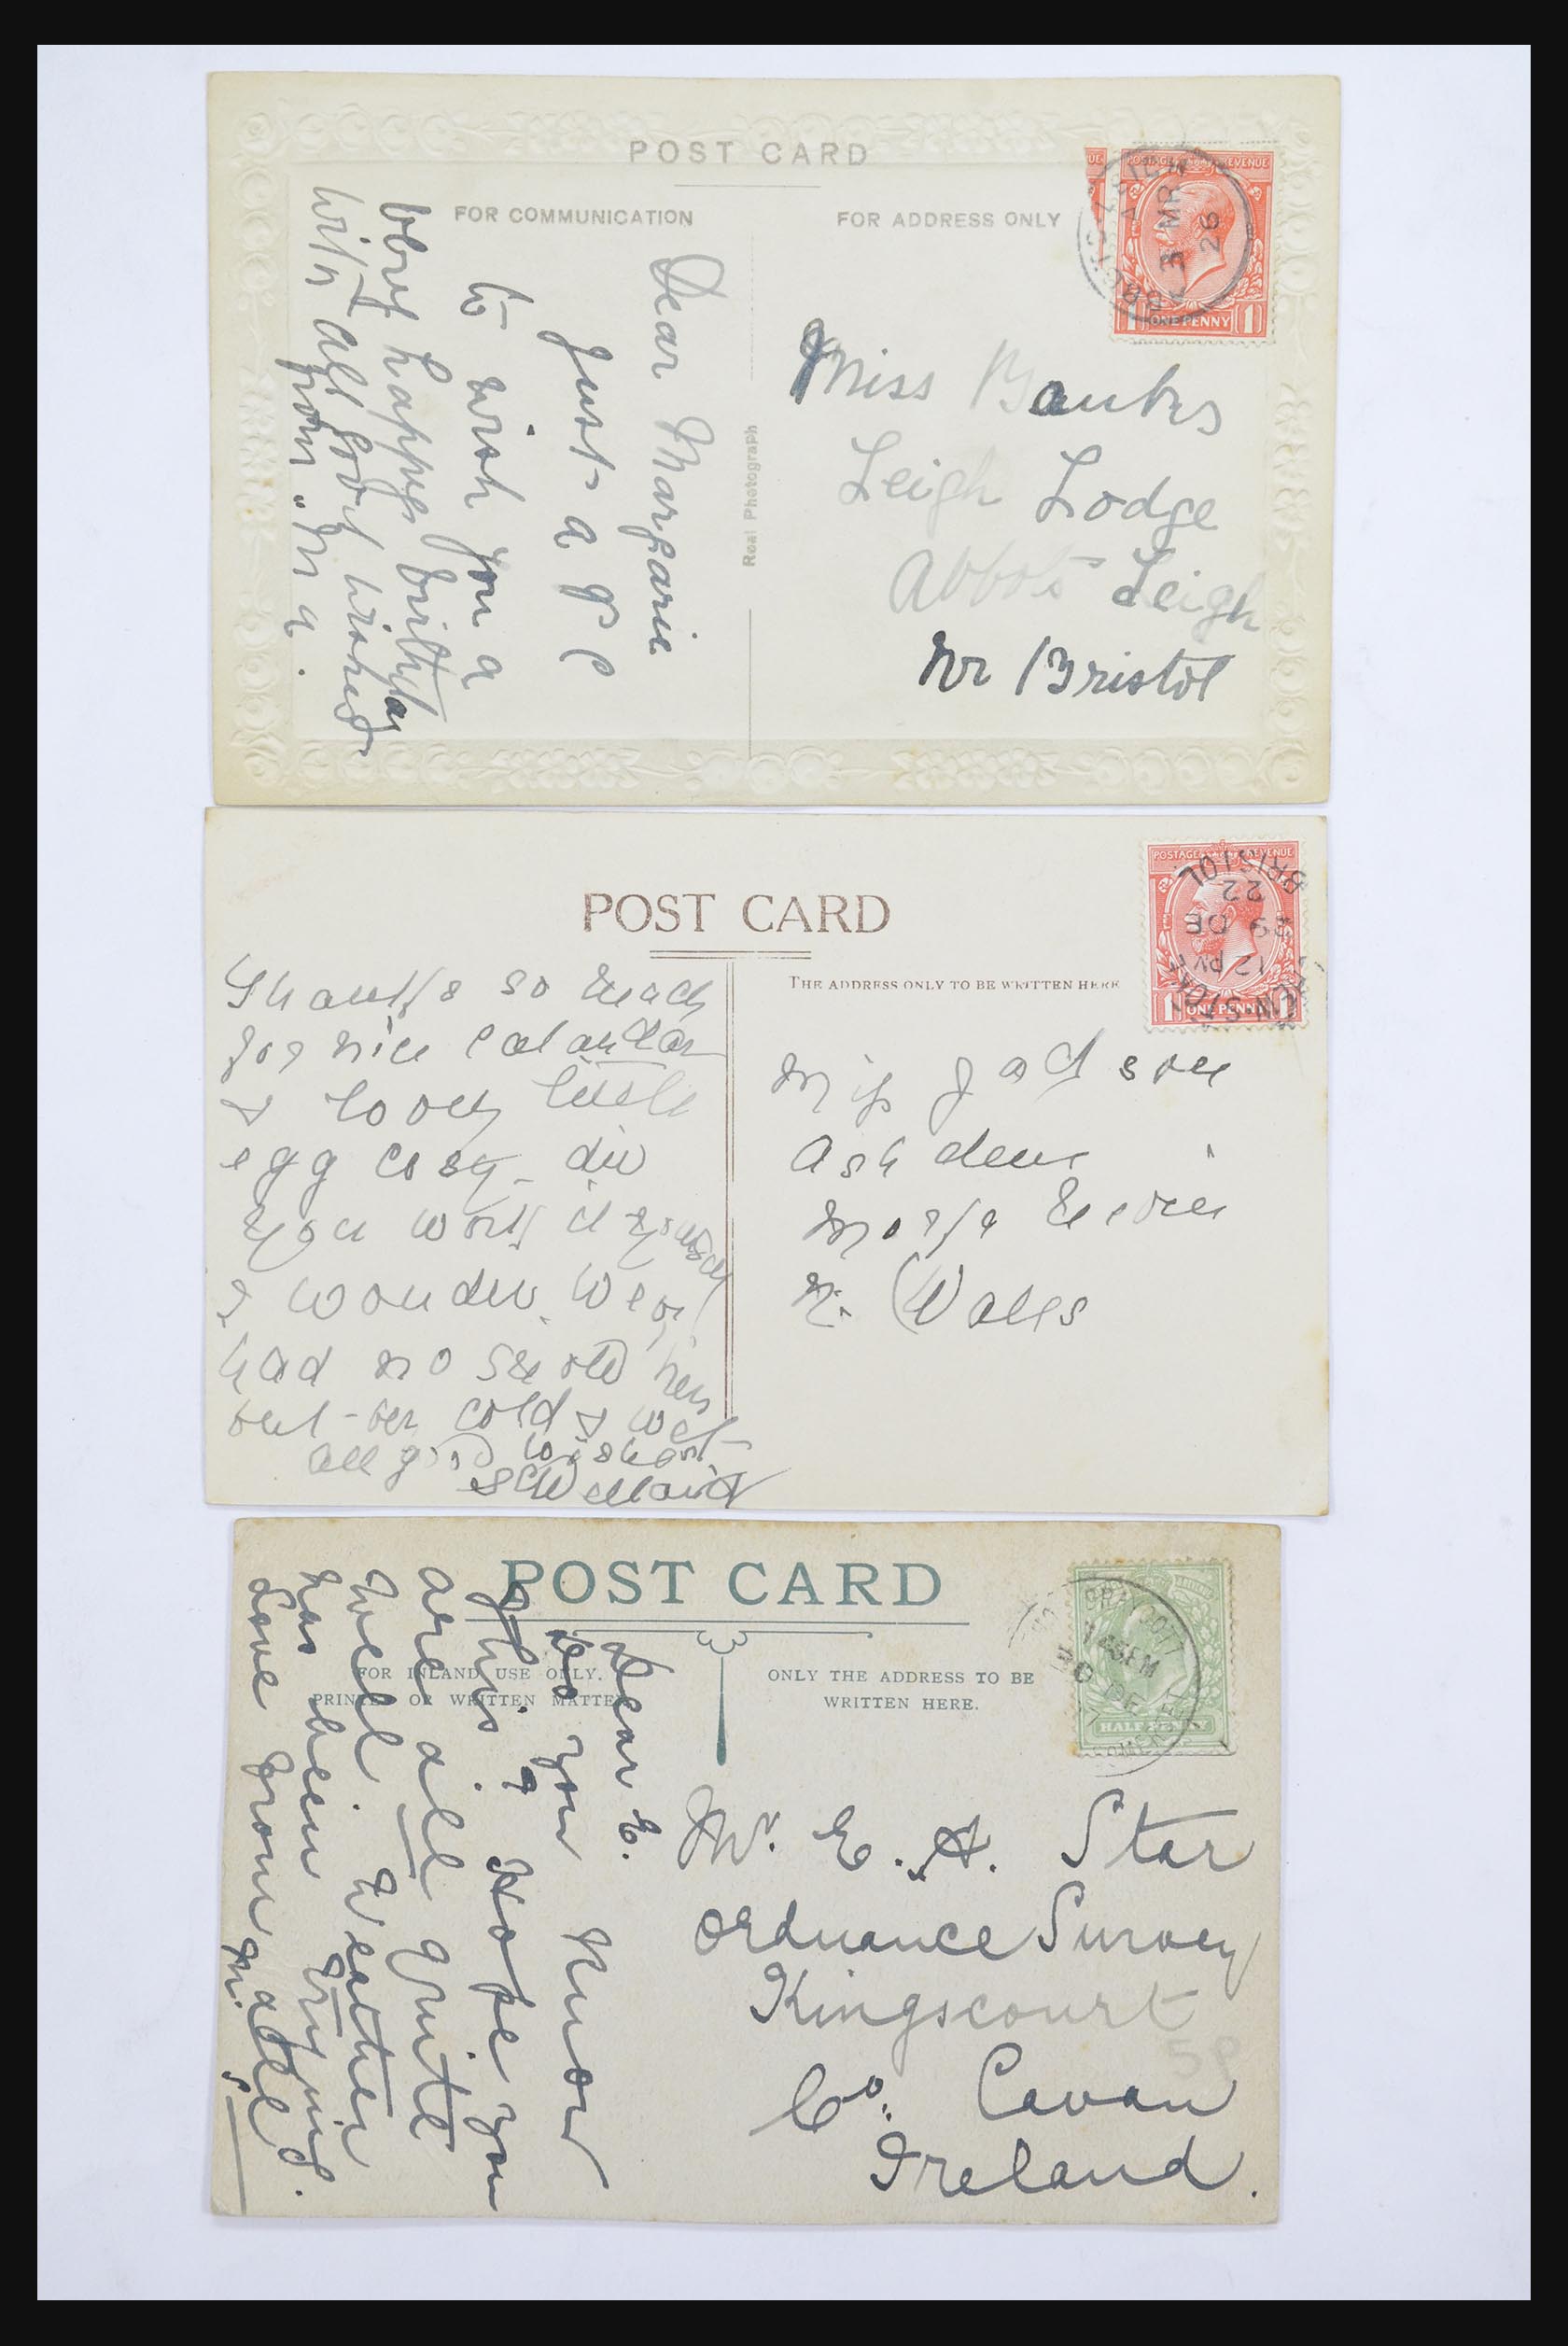 POST CARD
FOR COMMUNICATION
FOR ADDRESS ONLY
Real Photograph
Dear Marjarie
Just a P C
to wish you a
very happy birthday
with all good wishes
from
POSTAGE REVENUE
ONE PENNY
3 MR
26
Miss Banks
Leigh Lodge
Abbots Leigh
Nr Bristol
POST CARD
THE ADDRESS ONLY TO BE WRITTEN HERE
Thanks so much
for nice calandar
& lovey little
egg cosy did
you work it yourself
I wonder. We
had no snow here
but - cold & wet
all good wishes
POSTAGE REVENUE
ONE PENNY
BRISTOL
22
29 DE
12 PM
Miss Jackson
Ashdene
N. Wales
POST CARD
FOR INLAND USE ONLY.
PRINTED OR WRITTEN MATTER
ONLY THE ADDRESS TO BE
WRITTEN HERE.
HALF PENNY
Dear E.
Do you know
this? Hope you
are all quite
well. Weather
has been
Love from all
Mr. E. A. Star
Ordnance Survey
Kingscourt
Co. Cavan
Ireland.